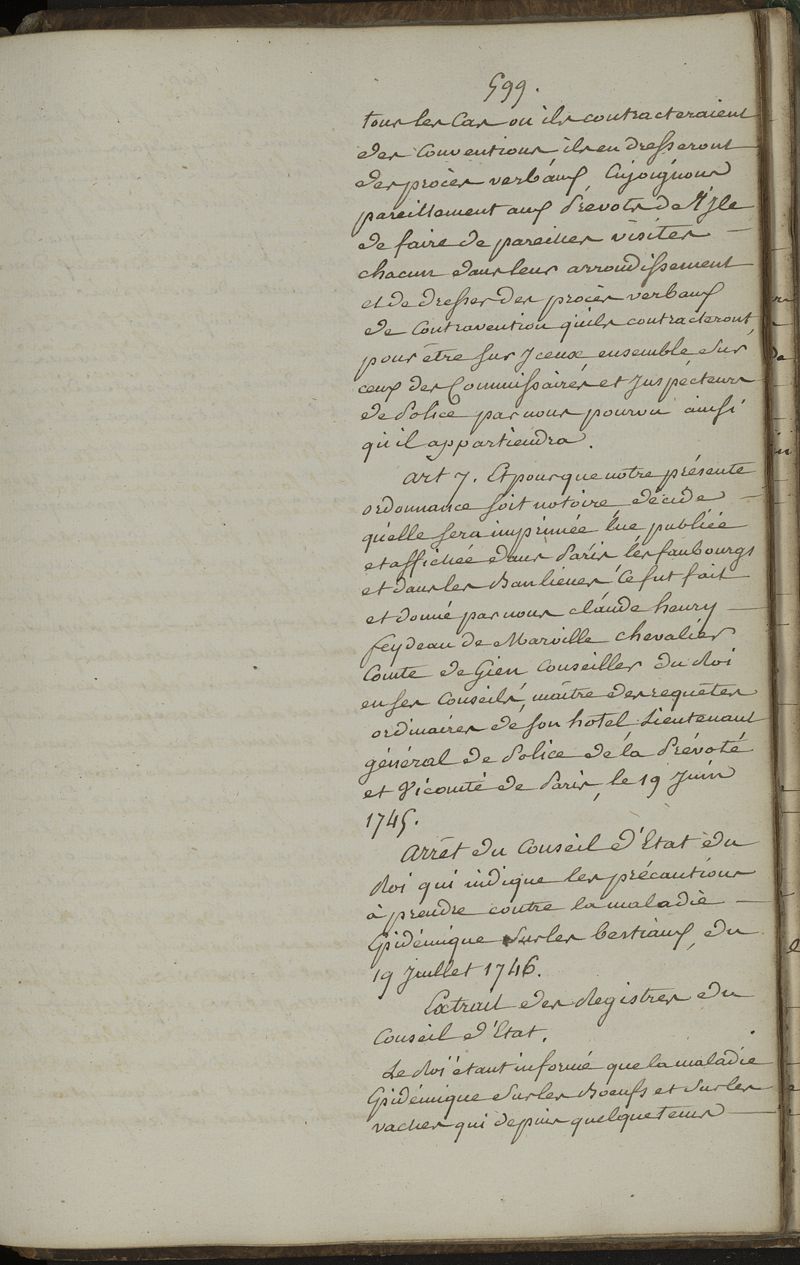 599.
tous les Cas ou ils contracteraient
des Conventions ils en dresseront
des procès verbaux, Enjoignons
pareillement aux Prévots de l'Isle
de faire de pareilles visites —
chacun dans leur arrondissement
et de dresser des procès verbaux
de Contravention qu'ils contracteront,
pour être sur Jceux ensemble sur
ceux des Commissaires et Juspécteurs
de Police par nous pourvu ainsi
qu'il appartiendra.
Art 7. Et pour que notre présente
ordonnance soit notoire, décide —
qu'elle sera imprimée lue publiée
et affichée dans Paris les faubourgs
et dans les Banlieues Ce fut fait
et donné par nous claude henry —
feydeau de Marville chevalier
Comte de Gien Conseiller du Roi
en ses Conseils, maitre des requêtes
ordinaires de son hotel Lieutenant
général de Police de la Prévoté
et Vicomté de Paris, le 19 Juin
1745.
Arrêt du Conseil d'Etat du
Roi qui indique les précautions
à prendre contre la maladie —
Epidémique sur les bestiaux, du
19 Juillet 1746.
Extrait des Registres du
Conseil d'Etat.
Le Roi étant informé que la maladie
Epidémique sur les Boeufs et sur les
vaches qui depuis quelque tems —